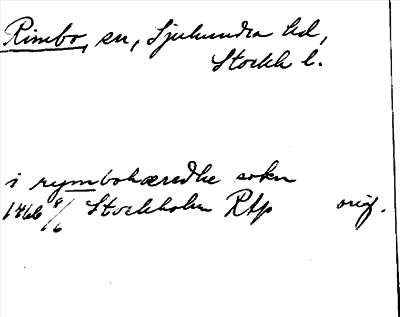 Rimbo, sn, Sjuhundra hd,
Stockh l.
i rymbohæredhe sokn
1466 8/6 Stockholm RAp orig.